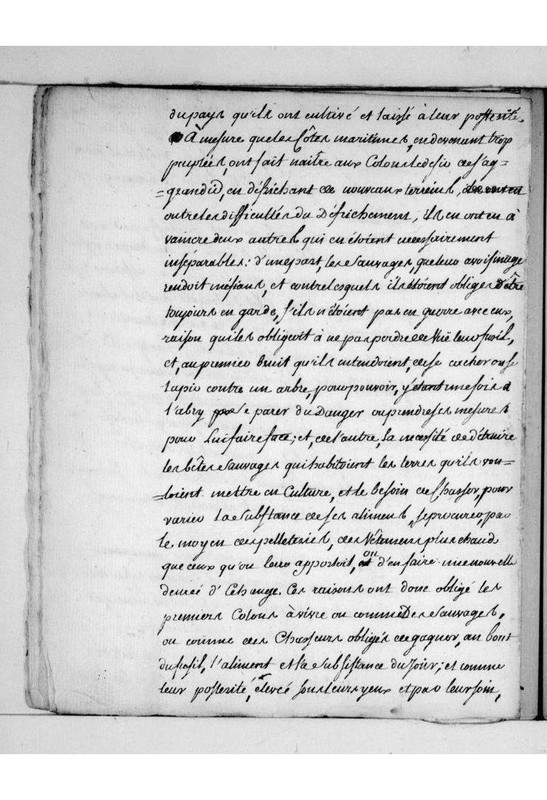 du pays qu'ils ont cultivé et laissé à leur postérité.
A mesure que les Côtes maritimes, en devenant trop
peuplées, ont fait naitre aux Colons le desir de s'ag-
=grandir, en défrichant de nouveaux terreins,
outre les difficultés du Défrichement, ils en ont eu à
vaincre deux autres qui en étoient necessairement
inséparables: d'une part, les Sauvages, que leur avoisinage
rendoit méfians, et contre lesquels ils étoient obligés d'être
toujours en garde, s'ils n'étoient pas en guerre avec eux,
raison qui les obligeoit à ne pas perdre de vuë leur fusil,
et, au premier bruit qu'ils entendoient, de se cacher ou se
tapir contre un arbre, pour pouvoir, y étant une fois à
l'abry se parer du Danger ou prendre ses mesures
pour lui faire face; et, de l'autre, la necessité de détruire
les bêtes Sauvages qui habitoient les terres qu'ils vou-
=loient mettre en Culture, et le besoin de Chasser, pour
varier la Substance de ses alimens, se procurer, par
le moyen des pelleteries, des Vêtemens plus chauds
que ceux qu'on leur apportoit, ou d'en faire une nouvelle
denreé d'Echange. Ces raisons ont donc obligé les
premiers Colons à vivre ou comme Des Sauvages,
ou comme des Chasseurs obligés de gagner, au bout
du fusil, l'aliment et la Subsistance du Jour; et comme
leur posterité, élevée sous leurs yeux et par leur soin,